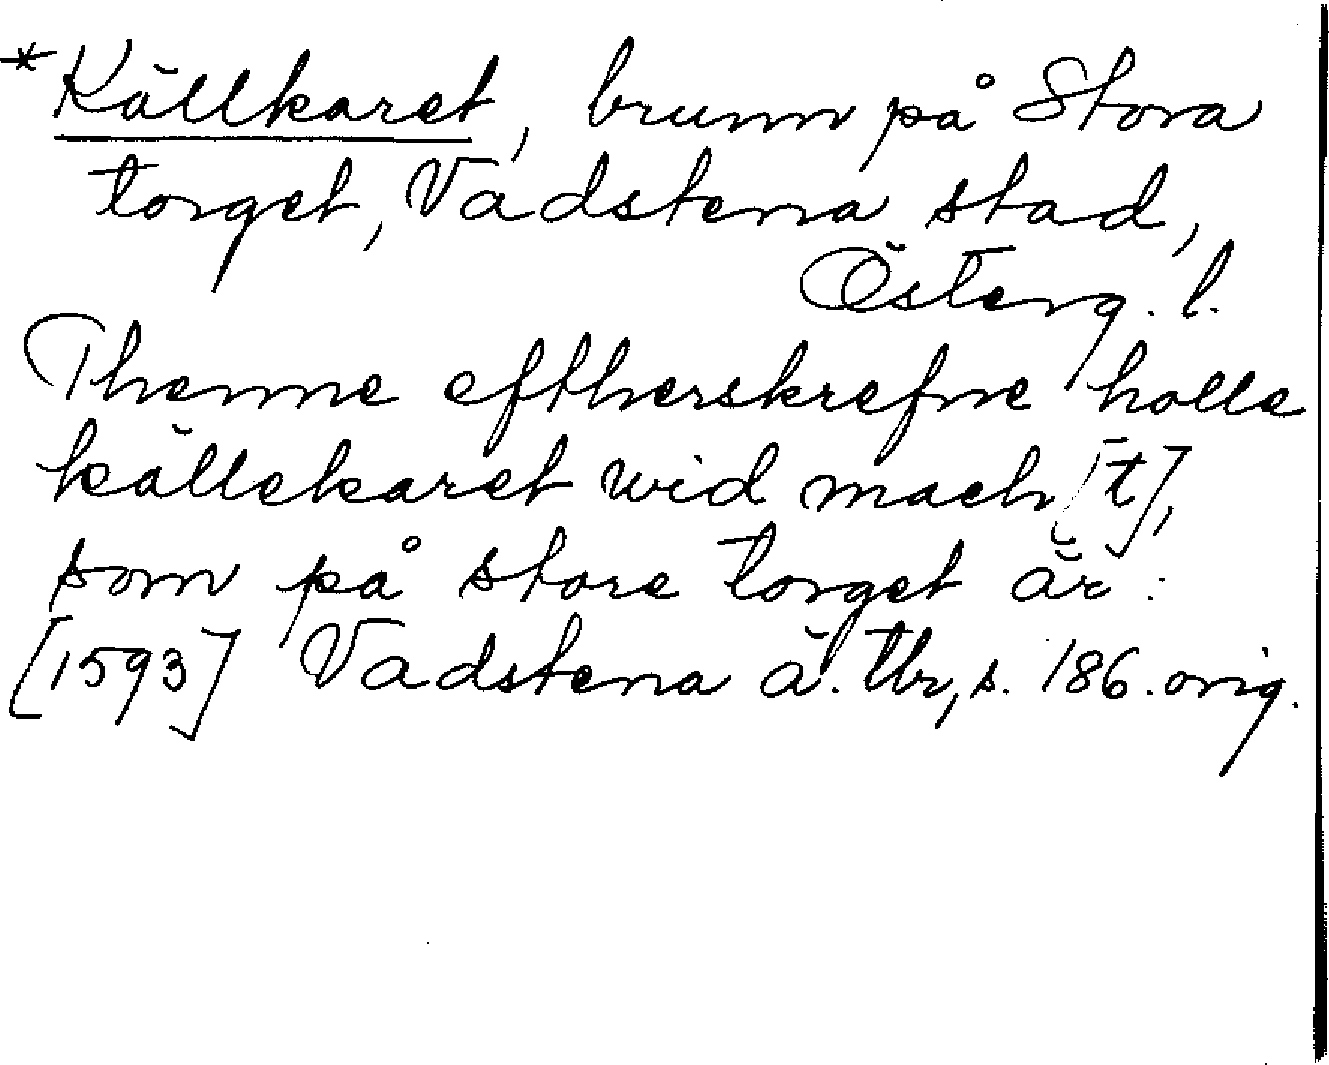 *Källkaret, brunn på Stora
torget, Vadstena stad,
Österg. l.
Thenne efftherskrefne holle
källekaret wid mach[t],
som på store torget är.
[1593] Vadstena ä. tb, s. 186. orig.